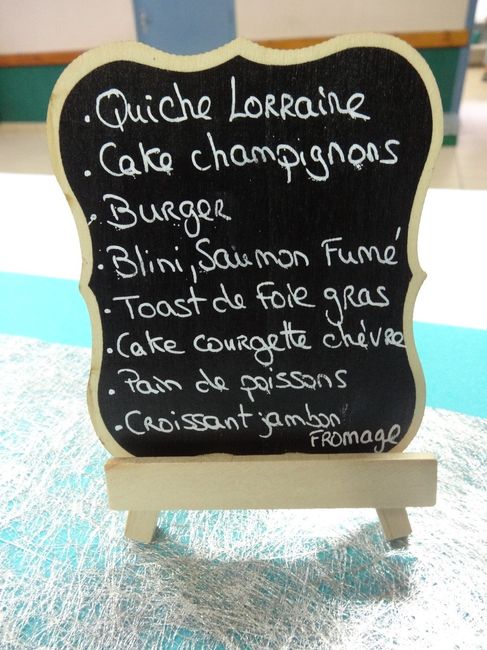 . Quiche Lorraine
. Cake champignons
. Burger
. Blini, Saumon Fumé
. Toast de Foie gras
. Cake courgette chévre
. Pain de poissons
. Croissant jambon
Fromage